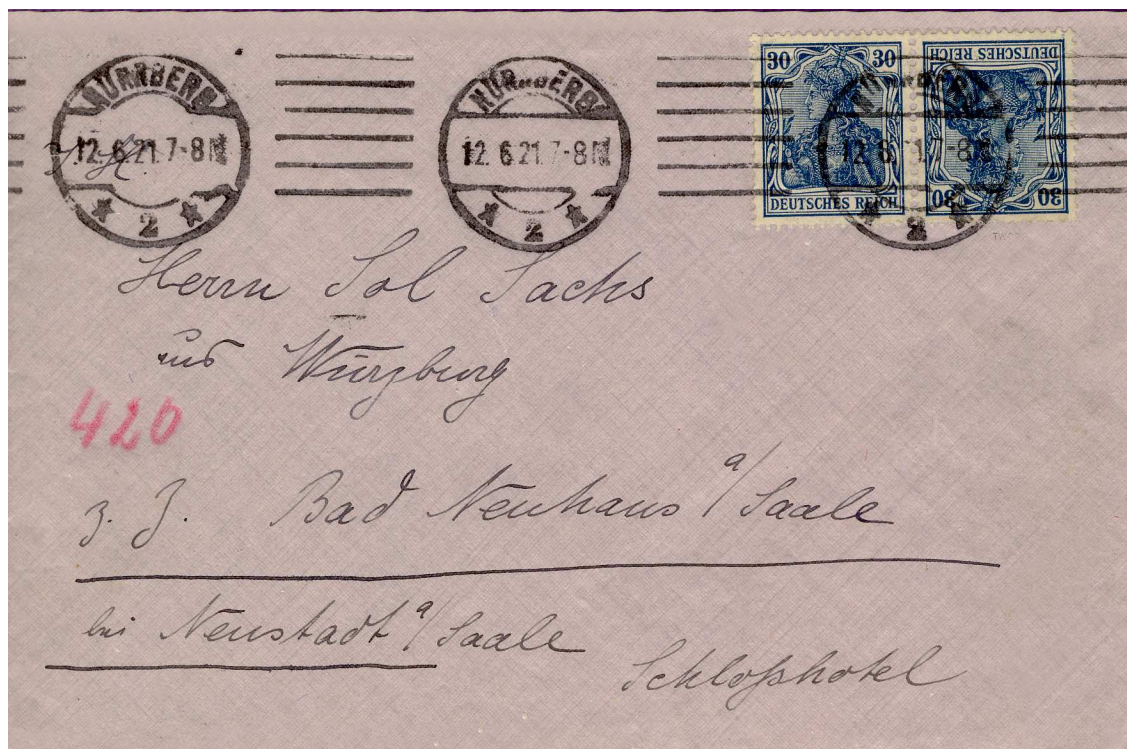 NÜRNBERG NÜRNBERG NÜRNBERG
12.6.21.7-8N 12.6.21.7-8N 12.6.21.7-8N
* 2 * * 2 * * 2 *
30 30 DEUTSCHES REICH
DEUTSCHES REICH 30 30
Herrn Sol Sachs
aus Würzburg
420
z. Z. Bad Neuhaus a/Saale
bei Neustadt a/Saale
Schloßhotel